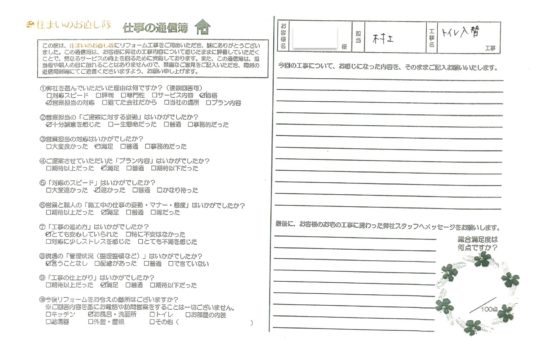 住まいのお直し隊
仕事の通信簿
この度は、住まいのお直し隊にリフォーム工事をご用命いただき、誠にありがとうござい
ました。この通信簿は、お客様に弊社の工事内容について感じたままに評価していただく
ことで、更なるサービスの向上を図るために実施しております。また、この通信簿は、担
①弊社を選んでいただいた理由は何ですか?（複数回答可）
□対応スピード □評判 □専門性 □サービス内容 ☑価格
☑営業担当の対応 □建てた会社だから □当社の場所 □プラン内容
②営業担当の「ご提案に対する姿勢」はいかがでしたか?
☑十分誠意を感じた □一生懸命だった □普通 □事務的だった
③営業担当の対応はいかがでしたか?
□大変良かった ☑満足 □普通 □事務的だった
④ご提案させていただいた「プラン内容」はいかがでしたか?
□期待以上だった ☑満足 □普通 □期待以下だった
⑤「対応のスピード」はいかがでしたか?
□大変速かった ☑速かった □普通 □かなり待った
⑥営業と職人の「施工中の仕事の姿勢・マナー・態度」はいかがでしたか?
□期待以上だった ☑満足 □普通 □雑だった
⑦「工事の進め方」はいかがでしたか?
☑とても安心していられた □特に不安はなかった
□対応に少しストレスを感じた □とても不満を感じた
⑧現場の「管理状況（整理整頓など）」はいかがでしたか?
☑言うことなし □配慮があった □普通 □できていない
⑨「工事の仕上がり」はいかがでしたか?
□期待以上だった ☑満足 □普通 □期待以下だった
⑩今後リフォームをお考えの箇所はございますか?
※ご回答内容を基にお電話や訪問営業をすることは一切ございません。
□キッチン ☑お風呂・洗面所 □トイレ □お部屋の内装
□給湯器 □外壁・屋根 □その他（ ）
お客様名
様
担当
村上
工事名
トイレ入替
工事
今回の工事について、お感じになった内容を、そのままご記入お願いいたします。
最後に、お客様のお宅の工事に携わった弊社スタッフへメッセージをお願いします。
総合満足度は
何点ですか?
／100点